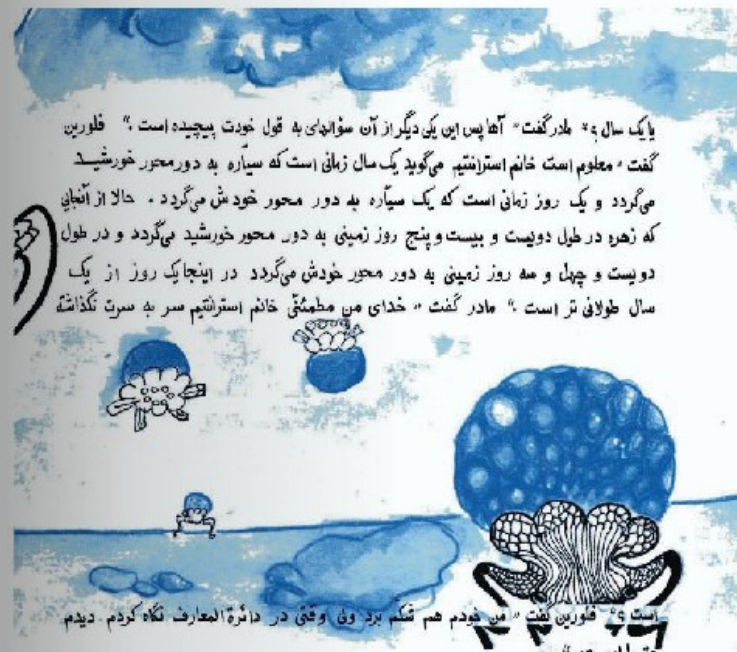 یا یک سال ؟" مادر گفت " آها پس این یکی دیگر از آن سؤالهای به قول خودت پیچیده است ." فلورین
گفت " معلوم است خانم استرانتیم می‌گوید یک سال زمانی است که سیّاره به دور محور خورشیــد
می‌گردد و یک روز زمانی است که یک سیّاره به دور محور خودش می‌گردد . حالا از آنجایی
که زهره در طول دویست و بیست و پنج روز زمینی به دور محور خورشید می‌گردد و در طول
دویست و چهل و سه روز زمینی به دور محور خودش می‌گردد در اینجا یک روز از یک
سال طولانی تر است ." مادر گفت " خدای من مطمئنی خانم استرانتیم سر به سرت نگذاشته
است ؟" فلورین گفت " من خودم هم شکّم برد ولی وقتی در دائرة المعارف نگاه کردم دیدم